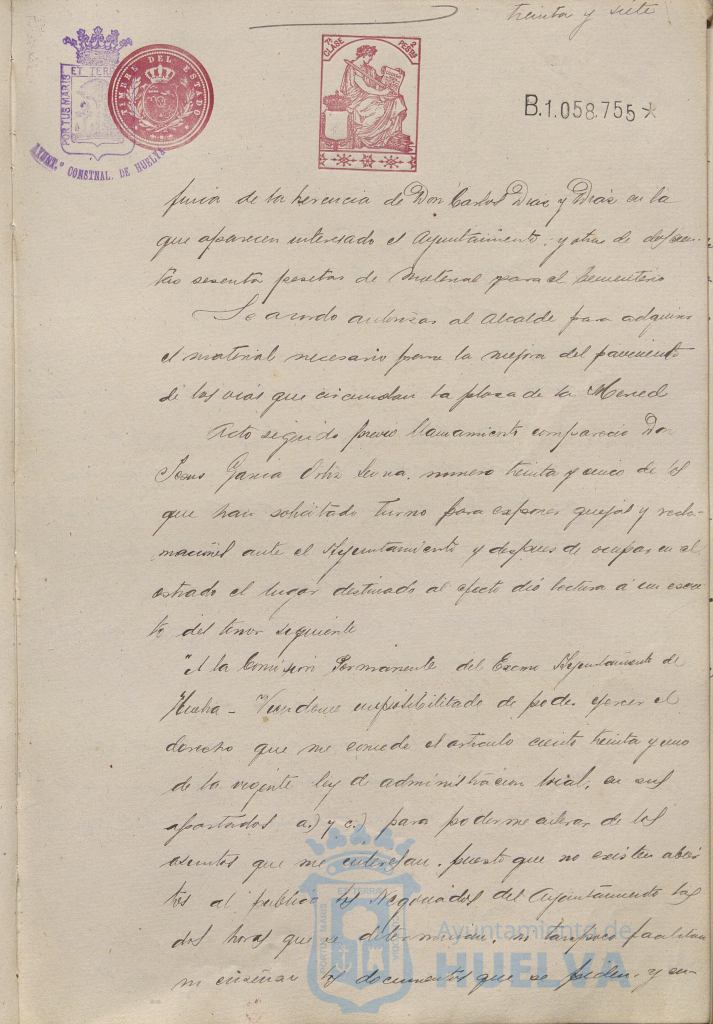 treinta y siete
ET TERRÆ
PORTUS MARIS
AYUNT.º CONSTNAL. DE HUELVA
TIMBRE DEL ESTADO
7ª CLASE
2 PESETAS
B.1.058.755 *
de la herencia de Don Carlos Diaz y Diaz en la
que aparecen interesado el Ayuntamiento; y otra de doscien-
tas sesenta pesetas de material para el Cementerio
Se acordo autorizar al Alcalde para adquirir
el material necesario para la mejora del pavimento
de las vias que circundan la plaza de la Merced
Acto seguido previo llamamiento comparecio Dn
Jesus Garcia Ortiz numero treinta y cinco de los
que han solicitado turno para exponer quejas y recla-
maciones ante el Ayuntamiento y despues de ocupar en el
estrado el lugar destinado al efecto dió lectura á un escri-
to del tenor siguiente
"A la Comisión Permanente del Excmo Ayuntamiento de
Huelva - Viendome imposibilitado de poder ejercer el
derecho que me concede el articulo ciento treinta y uno
de la vigente ley de administracion local, en sus
apartados a) y c) para poderme enterar de los
asuntos que me interesan, puesto que no existen abier-
tos al publico los Negociados del Ayuntamiento las
dos horas que se determinan, ni tampoco facilitan
ni enseñan los documentos que se piden, y en-
ET TERRÆ
PORTUS MARIS
CUSTODIA
Ayuntamiento de
HUELVA